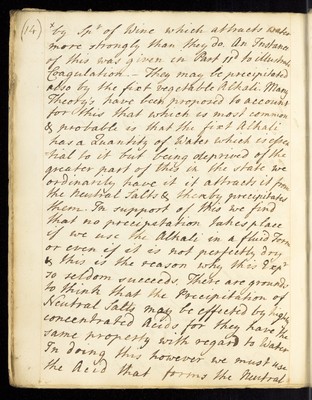 (14)
x by Spt of Wine which attracts water
more strongly than they do. An Instance
of this was given in Part 11d to illustrate
Coagulation. – They may be precipitated
also by the fixt vegetable Alkali. Many
Theory's have been proposed to account
for this that which is most common
& probable is that the fixt Alkali
has a Quantity of Water which is essen
tial to it but being deprived of the
greater part of this in the state we
ordinarily have it it attracts it from
the Neutral Salts & thereby precipitates
them. In support of this we find
that no precipitation takes place
if we use the Alkali in a fluid Form
or even if it is not perfectly dry
& this is the reason why this Expt
so seldom succeeds. There are grounds
to think that the Precipitation of
Neutral Salts may be effected by highly
concentrated Acids, for they have the
same property with regard to Water
In doing this however we must use
the Acid that forms the Neutral